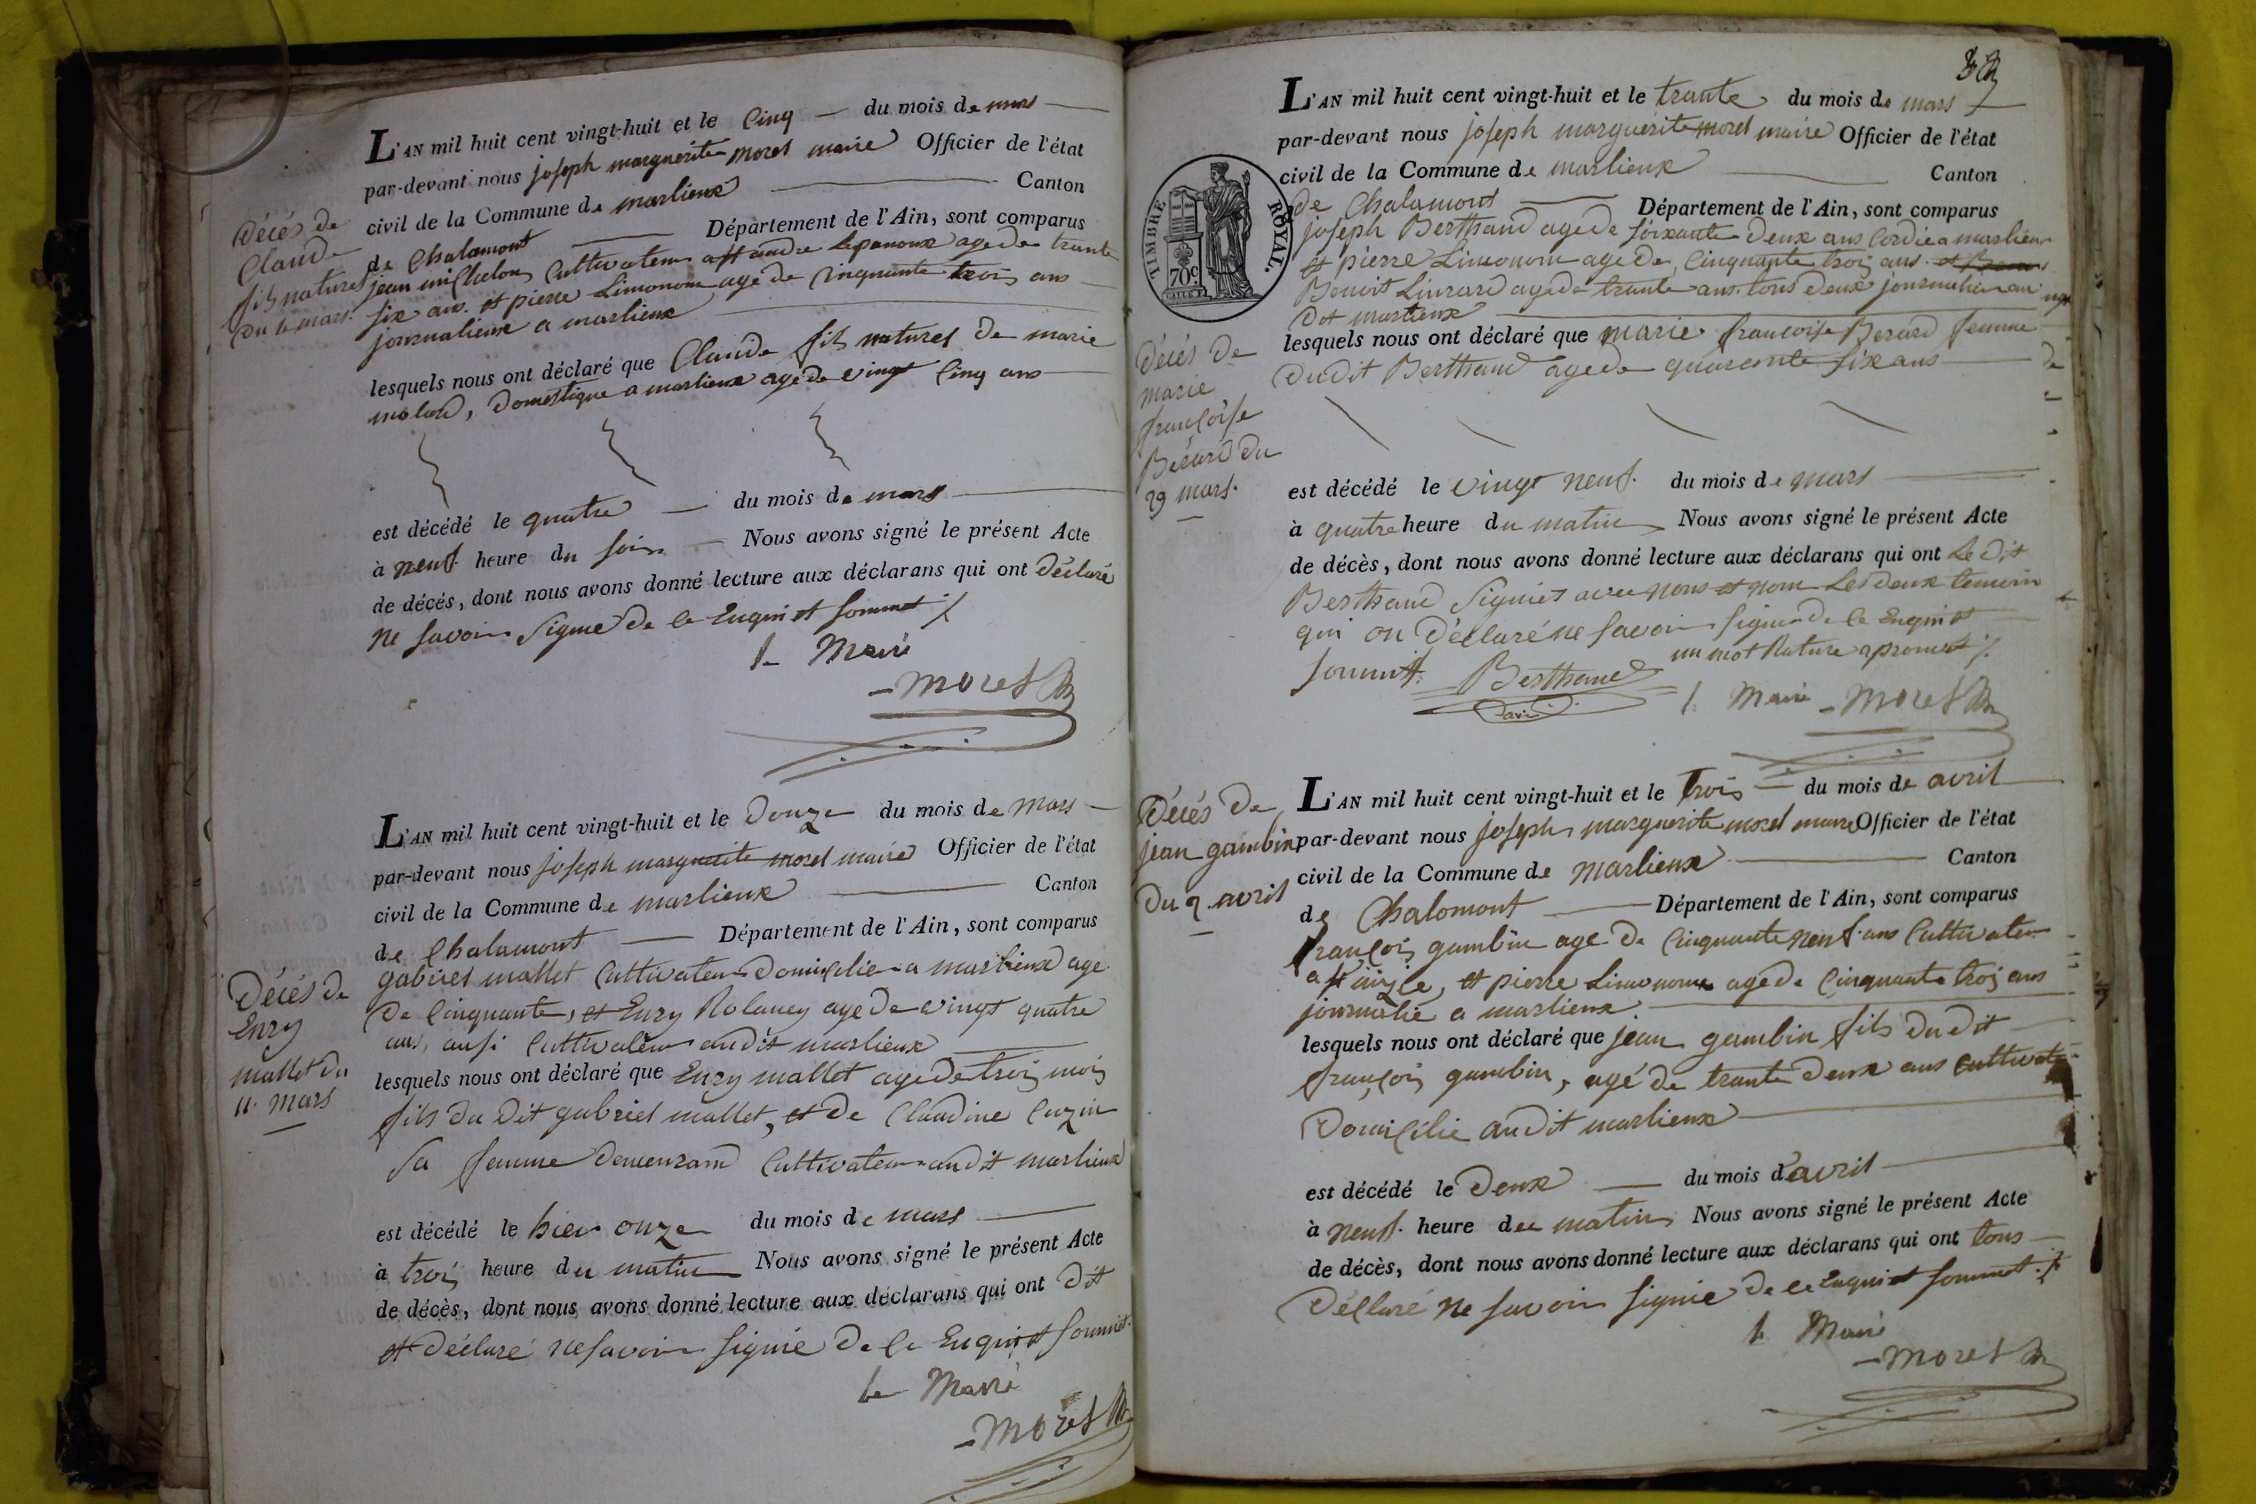 L'AN mil huit cent vingt-huit et le Cinq du mois de mars
par-devant nous joseph marguerite morel maire Officier de l'état
civil de la Commune de marlieux Canton
de Chalamont Département de l'Ain, sont comparus
jean michelon Cultivateur a st andre age de trante
six ans. et pierre Limonom age de cinquante trois ans
journalieux a marlieux
lesquels nous ont déclaré que Claude fils naturel de marie
molard, Domestique a marlieux age de vingt Cinq ans
est décédé le quatre du mois de mars
à neuf heure du soir Nous avons signé le présent Acte
de décés, dont nous avons donné lecture aux déclarans qui ont déclaré
ne savoir signie De ce Enquit et sommet
le Maire
Morel
Décés de
Claude
fils naturel
Du 4 mars.
L'AN mil huit cent vingt-huit et le Douze du mois de Mars
par-devant nous joseph marguerite morel maire Officier de l'état
civil de la Commune de marlieux Canton
de Chalamont Département de l'Ain, sont comparus
gabriel mallet Cultivateur Domicilie a marlieux age
De Cinquante, et Enzy Rolancy age De vingt quatre
ans, ausi Cultivateur audit marlieux
lesquels nous ont déclaré que Enzy mallet age de trois mois
fils du Dit gabriel mallet, et de Claudine Cuzin
sa femme Cultivateur audit marlieux
est décédé le hier onze du mois de mars
à trois heure du matin Nous avons signé le présent Acte
de décès, dont nous avons donné lecture aux déclarans qui ont Dit
et Déclaré ne savoir signie De ce Enquit et sommet
le Maire
Morel
Décés de
Enzy
mallet du
11. mars
L'AN mil huit cent vingt-huit et le trante du mois de mars
par-devant nous joseph marguerite morel maire Officier de l'état
civil de la Commune de marlieux Canton
de Chalamont Département de l'Ain, sont comparus
joseph Berthaud age de soixante Deux ans a marlieux
et pierre Limonom age De Cinquante trois ans
Benoit Linrard age de trante ans tous Deux journalier au
Dit marlieux
lesquels nous ont déclaré que marie françoise Berard femme
Dudit Berthaud age de quarante six ans
est décédé le vingt neuf. du mois de mars
à quatre heure du matin Nous avons signé le présent Acte
de décès, dont nous avons donné lecture aux déclarans qui ont Le Dit
Berthaud Signiet avec nous et nom Les Deux temoin
qui on Déclaré ne savoir signie De ce Enquit et
sommet. un mot Rature aprouvet
Berthaud
le Maire Morel
TIMBRE ROYAL.
70c
Décés de
marie
françoise
Bérard Du
29 mars.
L'AN mil huit cent vingt-huit et le Trois du mois de avril
par-devant nous joseph marguerite morel maire Officier de l'état
civil de la Commune de marlieux Canton
de Chalomont Département de l'Ain, sont comparus
françois gambin age De Cinquante neuf ans Cultivateur
et pierre Limonom age De Cinquante trois ans
journalie a marlieux
lesquels nous ont déclaré que jean gambin fils Du dit
françois gambin, agé de trante Deux ans Cultivateur
Domicilie audit marlieux
est décédé le Deux du mois d'avril
à neuf. heure du matin Nous avons signé le présent Acte
de décès, dont nous avons donné lecture aux déclarans qui ont tous
Déclaré ne savoir signie De ce Enquit et sommet
le Maire
Morel
Décés De
jean gambin
Du 2. avril